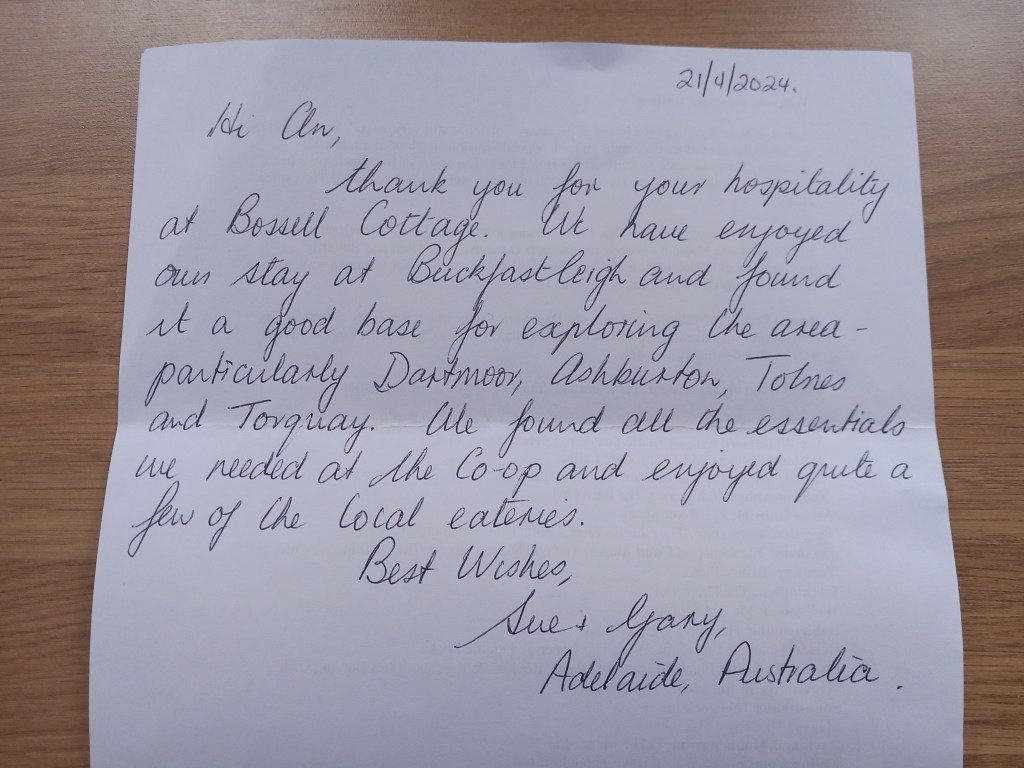 21/4/2024.
Hi An,
thank you for your hospitality
at Bossell Cottage. We have enjoyed
our stay at Buckfastleigh and found
it a good base for exploring the area -
particularly Dartmoor, Ashburton, Totnes
and Torquay. We found all the essentials
we needed at the Co-op and enjoyed quite a
few of the local eateries.
Best Wishes,
Sue + Gary,
Adelaide, Australia.